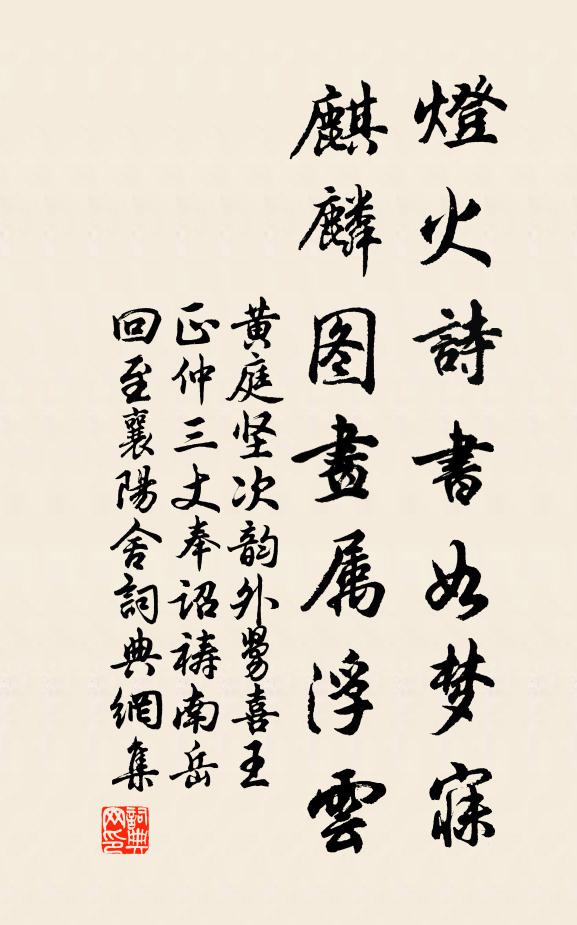 燈火詩書如梦寐
麒麟图畫属浮雲
黄庭坚次韵外舅喜王
正仲三丈奉诏祷南岳
回至襄陽舍詞典網集
詞典
网印